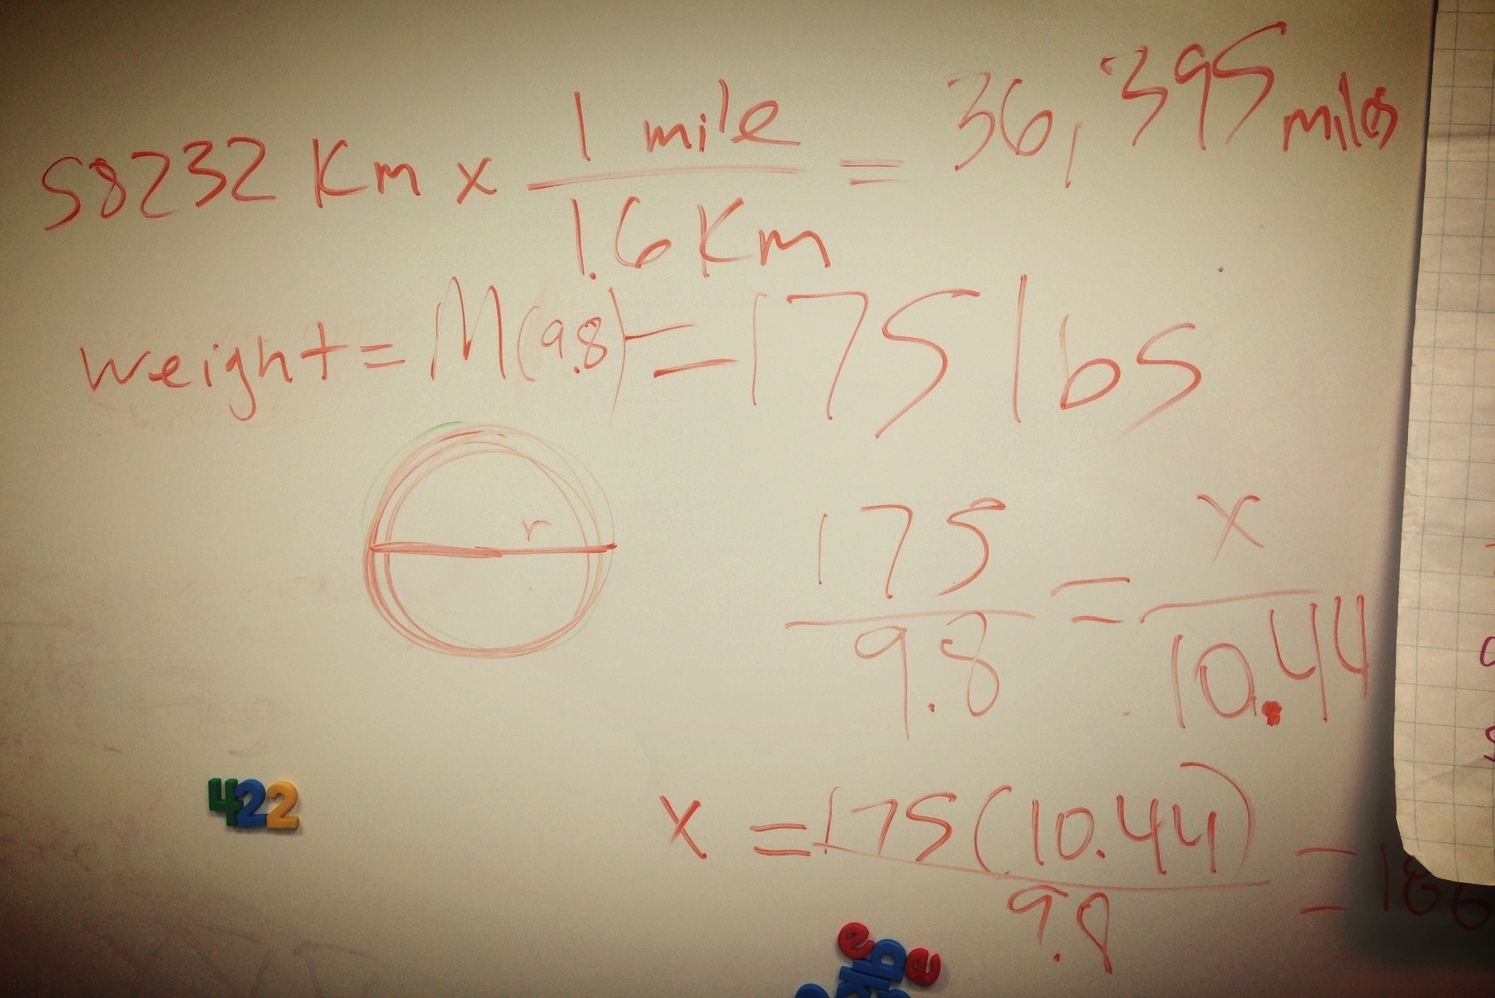 58232 Km x 1 mile / 1.6 Km = 36,395 miles
weight = M(9.8) = 175 lbs
r
175 / 9.8 = x / 10.44
422
x = 175(10.44) / 9.8 = 186
e a